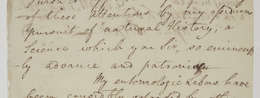 of these attentions by my ardent
pursuit of natural History, a
Science which you Sir, so eminent-
ly advance and patronize.
My entomologic Labors have
been